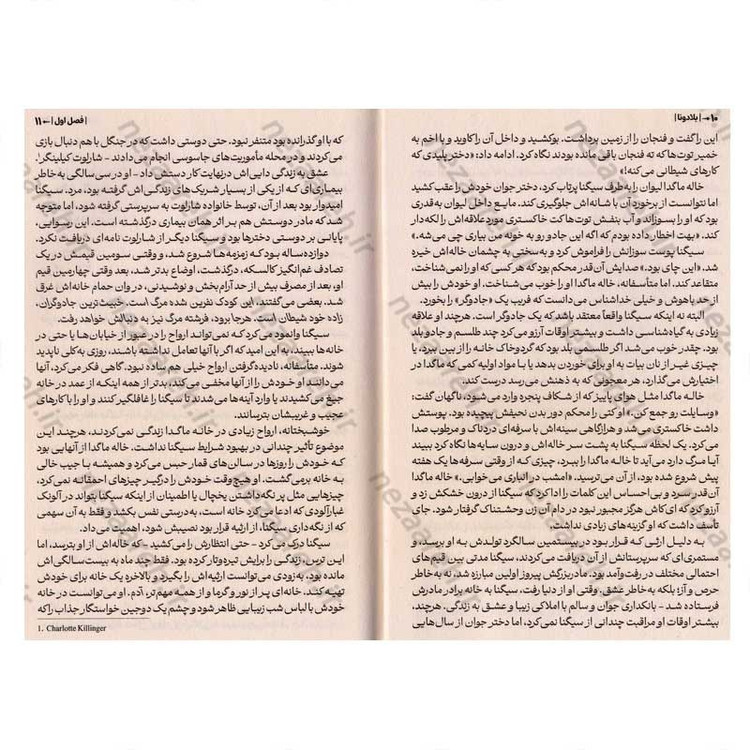 ۱۰ → | بلادونا |
این را گفت و فنجان را از زمین برداشت. بو کشید و داخل آن را کاوید و با اخم به
خمیر توت‌ها که ته فنجان باقی مانده بودند نگاه کرد. ادامه داد: «دختر پلیدی که
کارهای شیطانی می‌کنه!»
خاله ماگدا لیوان را به طرف سیگنا پرتاب کرد، دختر جوان خودش را عقب کشید
اما نتوانست از برخورد آن با شانه‌اش جلوگیری کند. مایع داخل لیوان به‌قدری
بود که او را بسوزاند و آب بنفش توت‌ها کت خاکستری مورد علاقه‌اش را لکه‌دار
کند. «بهت اخطار داده بودم که اگه این جادو رو به خونه من بیاری چی می‌شه.»
سیگنا پوست سوزانش را فراموش کرد و به‌سختی به چشمان خاله‌اش خیره
شد. «این چای بود.» صدایش آن قدر محکم بود که هر کسی که او را نمی‌شناخت،
متقاعد کند. اما متأسفانه، خاله ماگدا او را خوب می‌شناخت. او خودش را بیش
از حد باهوش و خیلی خداشناس می‌دانست که فریب یک «جادوگر» را بخورد.
البته نه اینکه سیگنا واقعاً معتقد باشد که یک جادوگر است. هرچند او علاقه
زیادی به گیاه‌شناسی داشت و بیشتر اوقات آرزو می‌کرد چند طلسم و جادو بلد
بود. چقدر خوب می‌شد اگر طلسمی بلد بود که گردوخاک خانه را از بین ببرد، یا
چیزی غیر از نان بیات به او برای خوردن بدهد یا با مواد اولیه کمی که ماگدا در
اختیارش می‌گذارد، هر معجونی که به ذهنش می‌رسد درست کند.
خاله ماگدا مثل هوای پاییز که از شکاف پنجره وارد می‌شود، ناگهان گفت:
«وسایلت رو جمع کن.» او کتی را محکم دور بدن نحیفش پیچیده بود. پوستش
خاکستری می‌شد و هرازگاهی سینه‌اش با سرفه‌ای دردناک و مرطوب صدا
می‌کرد. یک لحظه سیگنا به پشت سر خاله‌اش و درون سایه‌ها نگاه کرد ببیند
آیا مرگ دارد می‌آید تا خاله ماگدا را ببرد، چیزی که از وقتی سرفه‌ها یک هفته
پیش شروع شده بود، از آن می‌ترسید. «امشب در انباری می‌خوابی.» خاله ماگدا
آن قدر سرد و بی‌احساس این کلمات را ادا کرد که سیگنا از درون خشکش زد و
آرزو کرد که ای‌کاش هرگز مجبور نبود در دام آن زن وحشتناک گرفتار شود. جای
تأسف داشت که او گزینه‌های زیادی نداشت.
به دلیل ارثی که قرار بود در بیستمین سالگرد تولدش به او برسد، و
مستمری‌ای که سرپرستانش از آن دریافت می‌کردند، سیگنا مدتی بین قیم‌های
احتمالی مختلف در رفت‌وآمد بود. مادربزرگش پیروز اولین مبارزه شد، نه به خاطر
حرص و آز! بلکه به خاطر عشق. وقتی او از دنیا رفت، سیگنا به خانه برادر مادرش
فرستاده شد - بانکداری جوان و سالم با املاکی زیبا و عشق به زندگی. هرچند،
بیشتر اوقات او مراقبت چندانی از سیگنا نمی‌کرد، اما دختر جوان از سال‌هایی
| فصل اول | ← ۱۱
که با او گذرانده بود متنفر نبود. حتی دوستی داشت که در جنگل با هم دنبال بازی
می‌کردند و در محله مأموریت‌های جاسوسی انجام می‌دادند - شارلوت کیلینگر۱.
عشق به زندگی دایی‌اش درنهایت کار دستش داد - او در سی سالگی به خاطر
بیماری‌ای که از یکی از بسیار شریک‌های زندگی‌اش گرفته بود، مرد. سیگنا
امیدوار بود بعد از آن، توسط خانواده شارلوت به سرپرستی گرفته شود، اما متوجه
شد که مادر دوستش هم بر اثر همان بیماری درگذشته است. این رسوایی،
پایانی بر دوستی دخترها بود و سیگنا دیگر از شارلوت نامه‌ای دریافت نکرد.
دوازده‌ساله بود که زمزمه‌ها شروع شد، و وقتی سومین قیمش در یک
تصادف غم‌انگیز کالسکه، درگذشت، اوضاع بدتر شد، بعد وقتی چهارمین قیم
او، بعد از مصرف بیش از حد آرام‌بخش و نوشیدنی، در وان حمام خانه‌اش غرق
شد. بعضی می‌گفتند، این کودک نفرین شده مرگ است. خبیث‌ترین جادوگران،
زاده خود شیطان است. هرجا برود، فرشته مرگ نیز به دنبالش خواهد رفت.
سیگنا وانمود می‌کرد که نمی‌تواند ارواح را در عبور از خیابان‌ها یا حتی در
خانه‌ها ببیند، به این امید که اگر با آنها تعامل نداشته باشند، روزی به‌کلی ناپدید
شوند. متأسفانه، نادیده‌گرفتن ارواح خیلی هم ساده نبود. گاهی فکر می‌کرد، آنها
می‌دانند او خودش را از آنها مخفی می‌کند، بدتر از همه اینکه از عمد در خانه
جیغ می‌کشیدند یا وارد آینه‌ها می‌شدند تا سیگنا را غافلگیر کنند و او را با کارهای
عجیب و غریبشان بترسانند.
خوشبختانه، ارواح زیادی در خانه ماگدا زندگی نمی‌کردند، هرچند این
موضوع تأثیر چندانی در بهبود شرایط سیگنا نداشت. خاله ماگدا از آنهایی بود
که خودش را روزها در سالن‌های قمار حبس می‌کرد و همیشه با جیب خالی
به خانه برمی‌گشت. او هیچ‌وقت خودش را درگیر چیزهای احمقانه نمی‌کرد،
چیزهایی مثل پر نگه داشتن یخچال یا اطمینان از اینکه سیگنا بتواند در آلونک
غبارآلودی که ادعا می‌کرد خانه است، به‌درستی نفس بکشد و فقط به آن سهمی
که از نگه‌داری سیگنا، از ارثیه قرار بود نصیبش شود، اهمیت می‌داد.
سیگنا درک می‌کرد - حتی انتظارش را می‌کشید - که خاله‌اش از او بترسد، اما
این ترس، زندگی را برایش تیره‌وتار کرده بود. فقط چند ماه به بیست سالگی‌اش
مانده بود، به‌زودی می‌توانست ارثیه‌اش را بگیرد و بالاخره یک خانه برای خودش
تهیه کند. خانه‌ای پر از نور و گرما و از همه مهم‌تر، آدم. او می‌توانست در خانه
خودش با لباس شب زیبایی ظاهر شود و چشم یک دوجین خواستگار جذاب را که
1. Charlotte Killinger